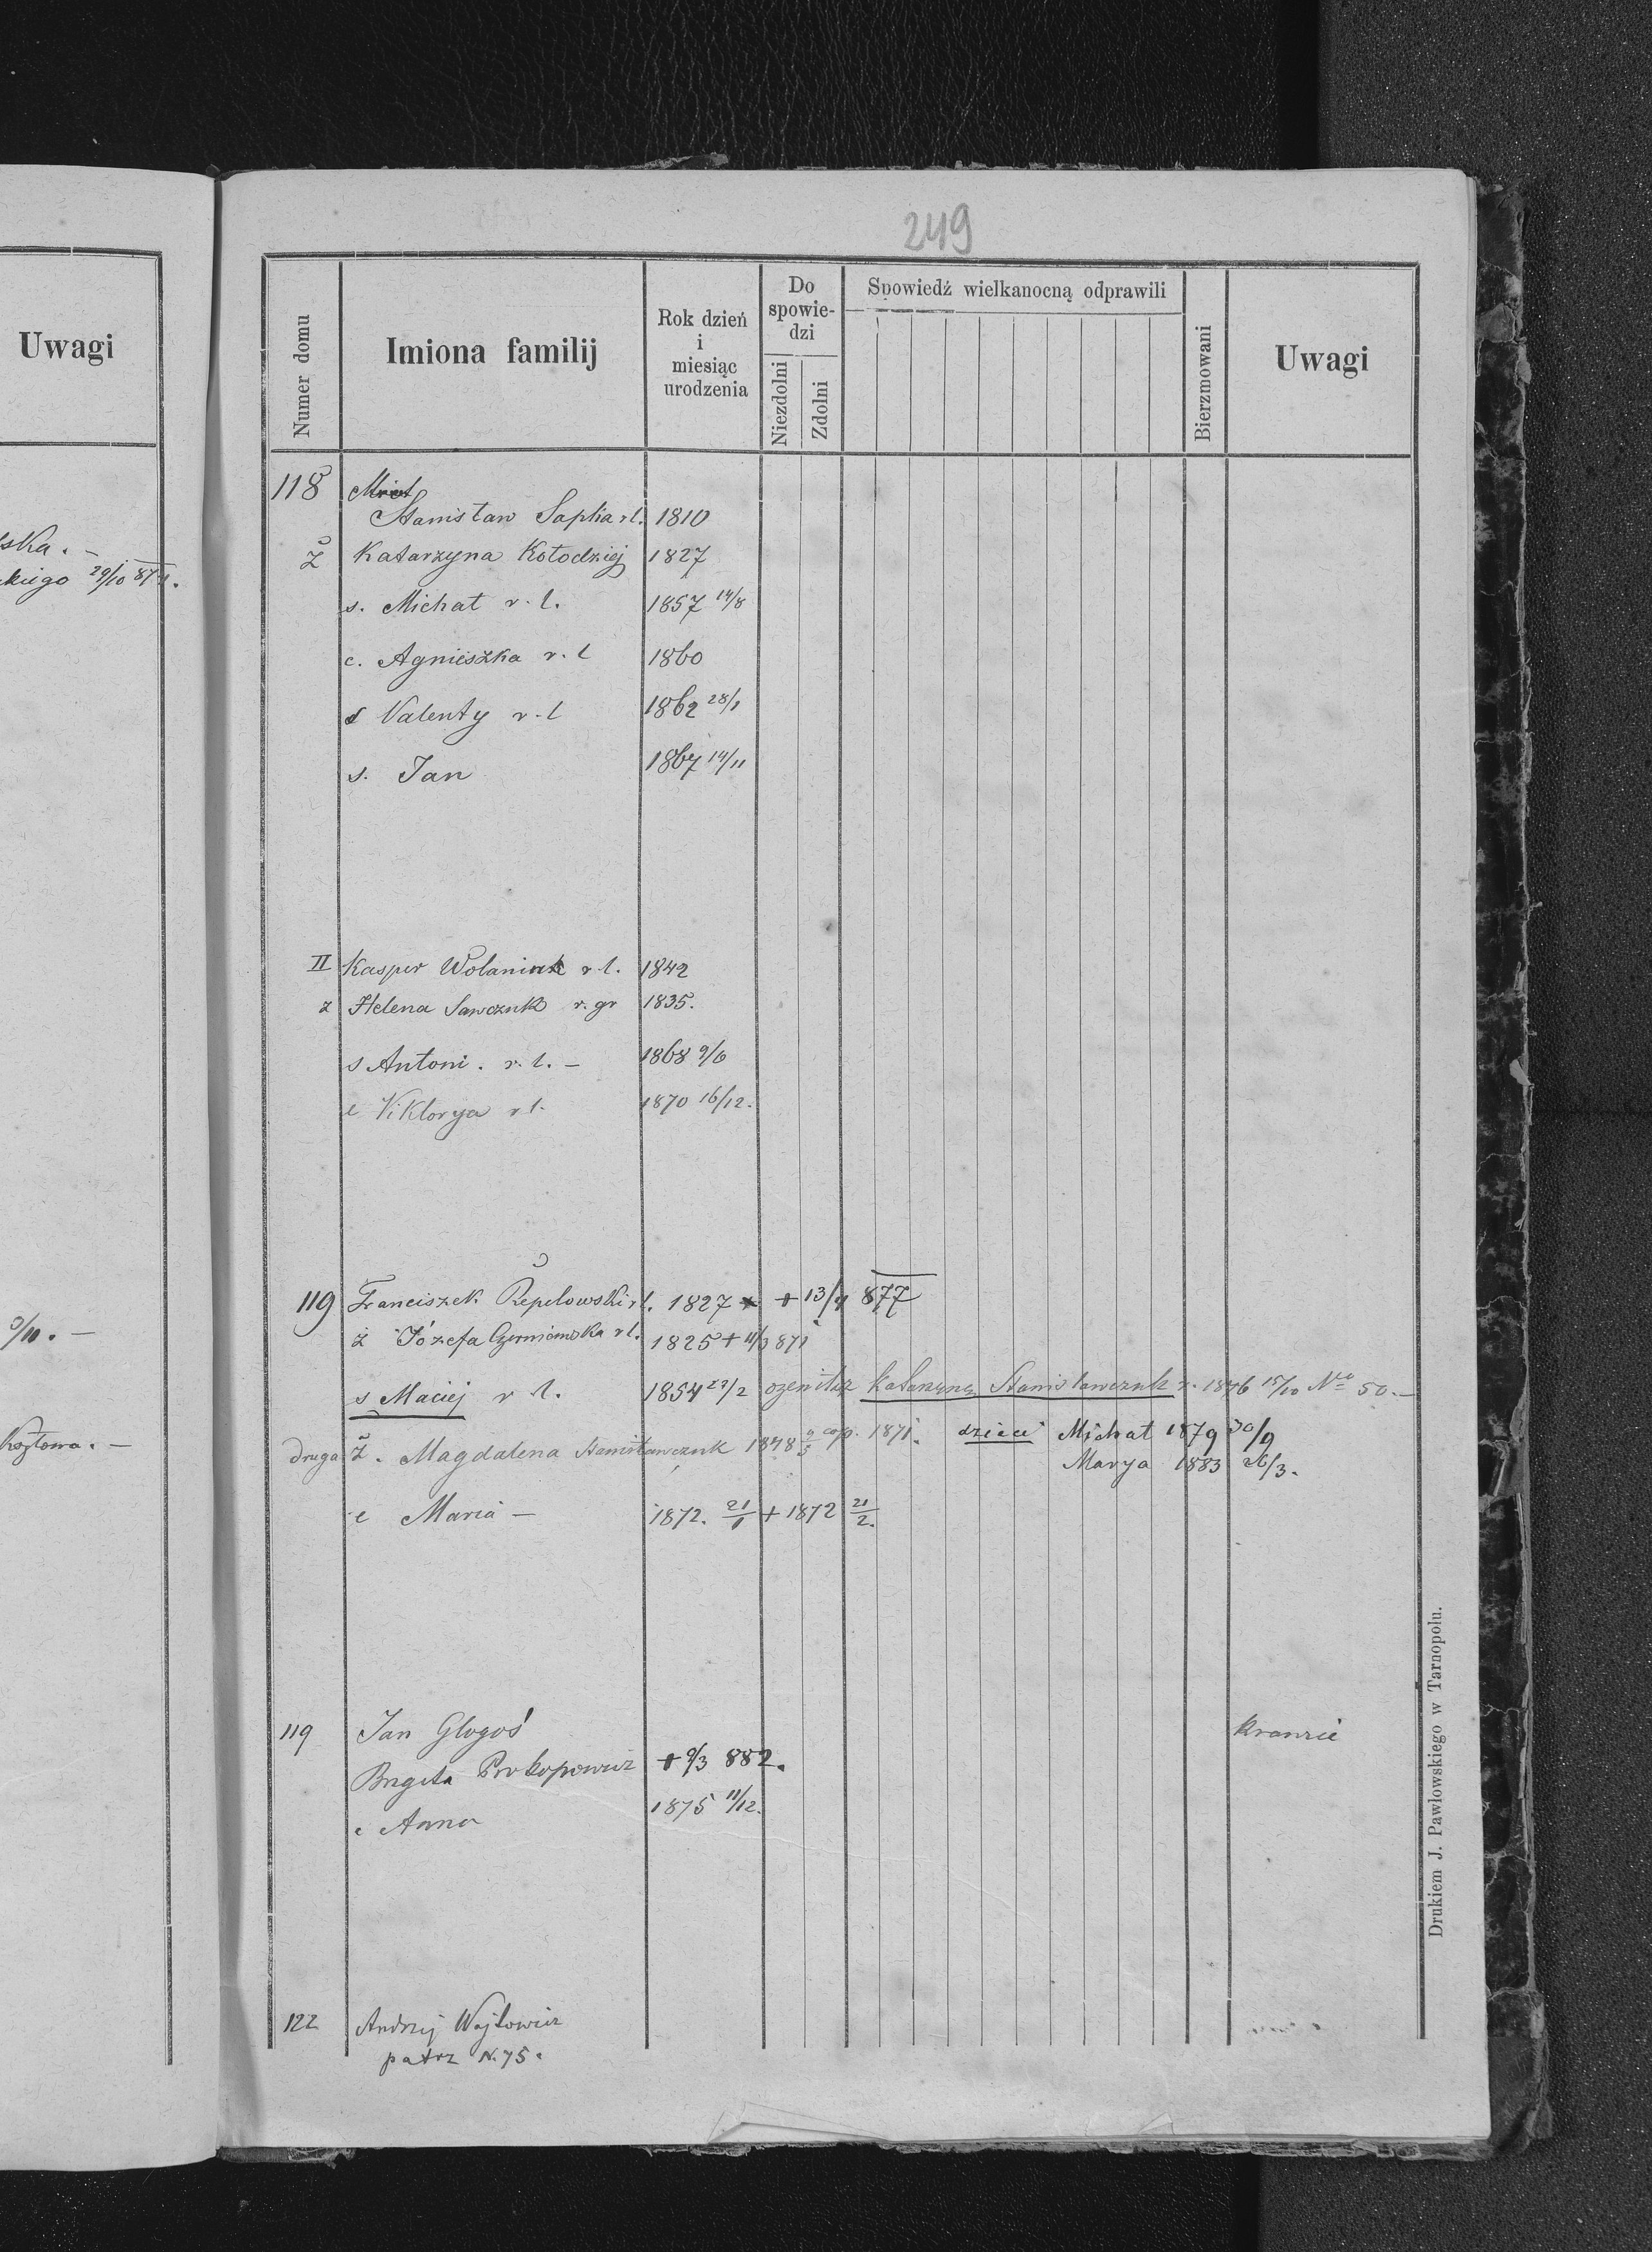 Uwagi
ska. –
kiego 29/10 871.
9/11. –
Kozłowa. –
249
Numer domu
Imiona familij
Rok dzień
i
miesiąc
urodzenia
Do
spowie-
dzi
Niezdolni
Zdolni
Spowiedź wielkanocną odprawili
Bierzmowani
Uwagi
118
Stanisław Saplia r l. 1810
Ż Katarzyna Kołodziej 1827
s. Michał r. l. 1857 14/8
c. Agnieszka r. l 1860
s Valenty r. l 1862 28/1
s. Jan 1867 14/11
II Kasper Wolaniuk r l. 1842
ż Helena Sawczuk r. gr 1835.
s Antoni. r. l. – 1868 9/6
c Viktorya r l. 1870 16/12.
119 Franciszek Repelowski r l. 1827 + 13/4 877
ż Józefa Czerniowska r l. 1825 + 11/3 871
s Maciej r l. 1854 27/2 ożenił się Katarzyną Stanisławczuk r. 1876 15/10 No 50. –
druga Ż. Magdalena Stanisławczuk 1848 9/5 cop. 1871. dzieci Michał 1879 30/9
Marya 1883 26/3.
c Maria – 1872. 21/1 + 1872 21/2.
119 Jan Glogoś
Brygita Prokopowicz + 9/3 882.
c Anna 1875 11/12.
122 Andrzej Wojtowicz
patrz N. 75.
Drukiem J. Pawłowskiego w Tarnopolu.